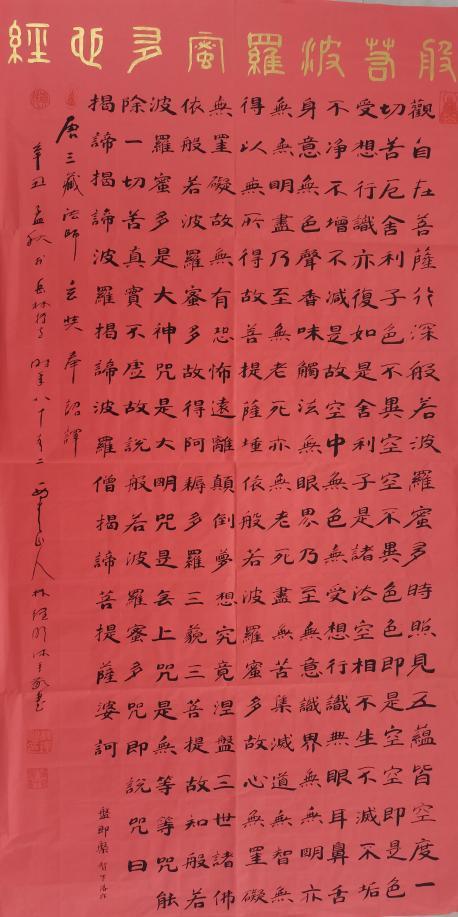 般若波羅蜜多心經
觀自在菩薩行深般若波羅蜜多時照見五蘊皆空度一
切苦厄舍利子色不異空空不異色色即是空空即是色
受想行識亦復如是舍利子是諸法空相不生不滅不垢
不淨不增不減是故空中無色無受想行識無眼耳鼻舌
身意無色聲香味觸法無眼界乃至無意識界無無明亦
無無明盡乃至無老死亦無老死盡無苦集滅道無智無
得以無所得故菩提薩埵依般若波羅蜜多故心無罣礙
無罣礙故無有恐怖遠離顛倒夢想究竟涅盤三世諸佛
依般若波羅蜜多故得阿耨多羅三藐三菩提故知般若
波羅蜜多是大神咒是大明咒是无上咒是無等等咒能
除一切苦真實不虛故說般若波羅蜜多咒即說咒曰
揭諦揭諦波羅揭諦波羅僧揭諦菩提薩婆訶
盤即槃
唐三藏法師玄奘奉詔譯
辛丑孟秋於 時年八十有二 山人林 沐手敬書